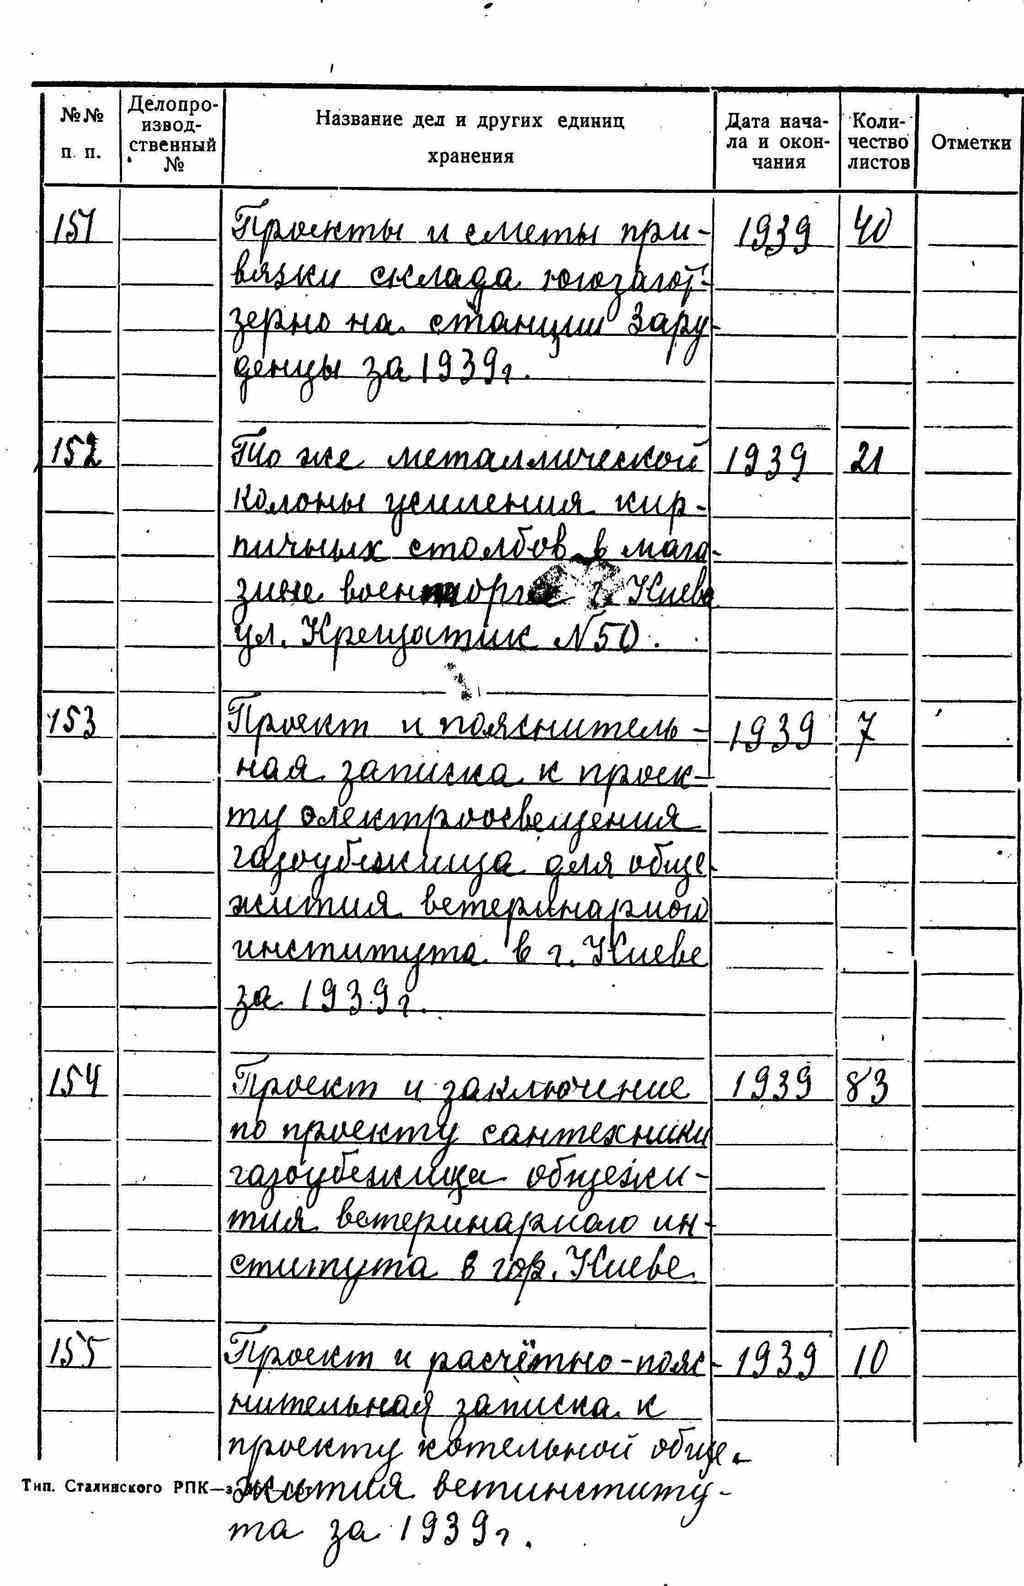 №№ п. п.
Делопро-
извод-
ственный
№
Название дел и других единиц
хранения
Дата нача-
ла и окон-
чания
Коли-
чество
листов
Отметки
151 Проекты и сметы при- 1939 40
вязки склада югозагот-
зерно на станции Зару-
денцы за 1939г.
152 То же металлической 1939 21
колоны усиления кир-
пичных столбов в мага-
зине военторга г. Киева
ул. Крещатик №50.
153 Проект и пояснитель- 1939 7
ная записка к проек-
ту электроосвещения
газоубежища для обще-
жития ветеринарного
института в г. Киеве
за 1939г.
154 Проект и заключение 1939 83
по проекту сантехники
газоубежища общежи-
тия ветеринарного ин-
ститута в гор. Киеве
155 Проект и расчётно-пояс- 1939 10
нительная записка к
проекту котельной обще-
жития ветинститу-
та за 1939г.
Тип. Сталинского РПК—з.